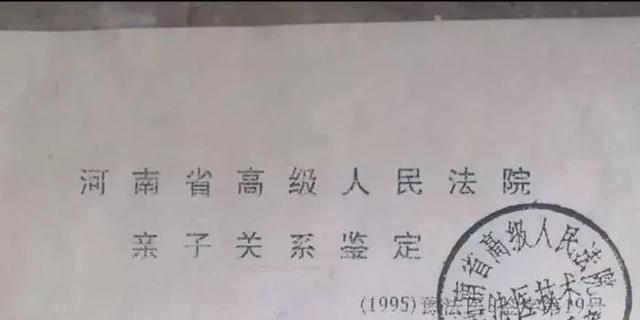 河南省高级人民法院
亲子关系鉴定
(1995)豫法医
第19号
南省高级人民法院
医技术